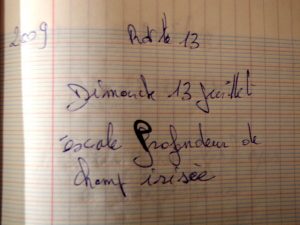 2009
13
Dimanche 13 juillet
escale Profondeur de
champ irisée